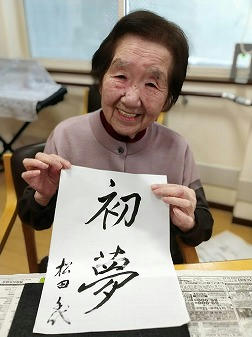 初夢
松田